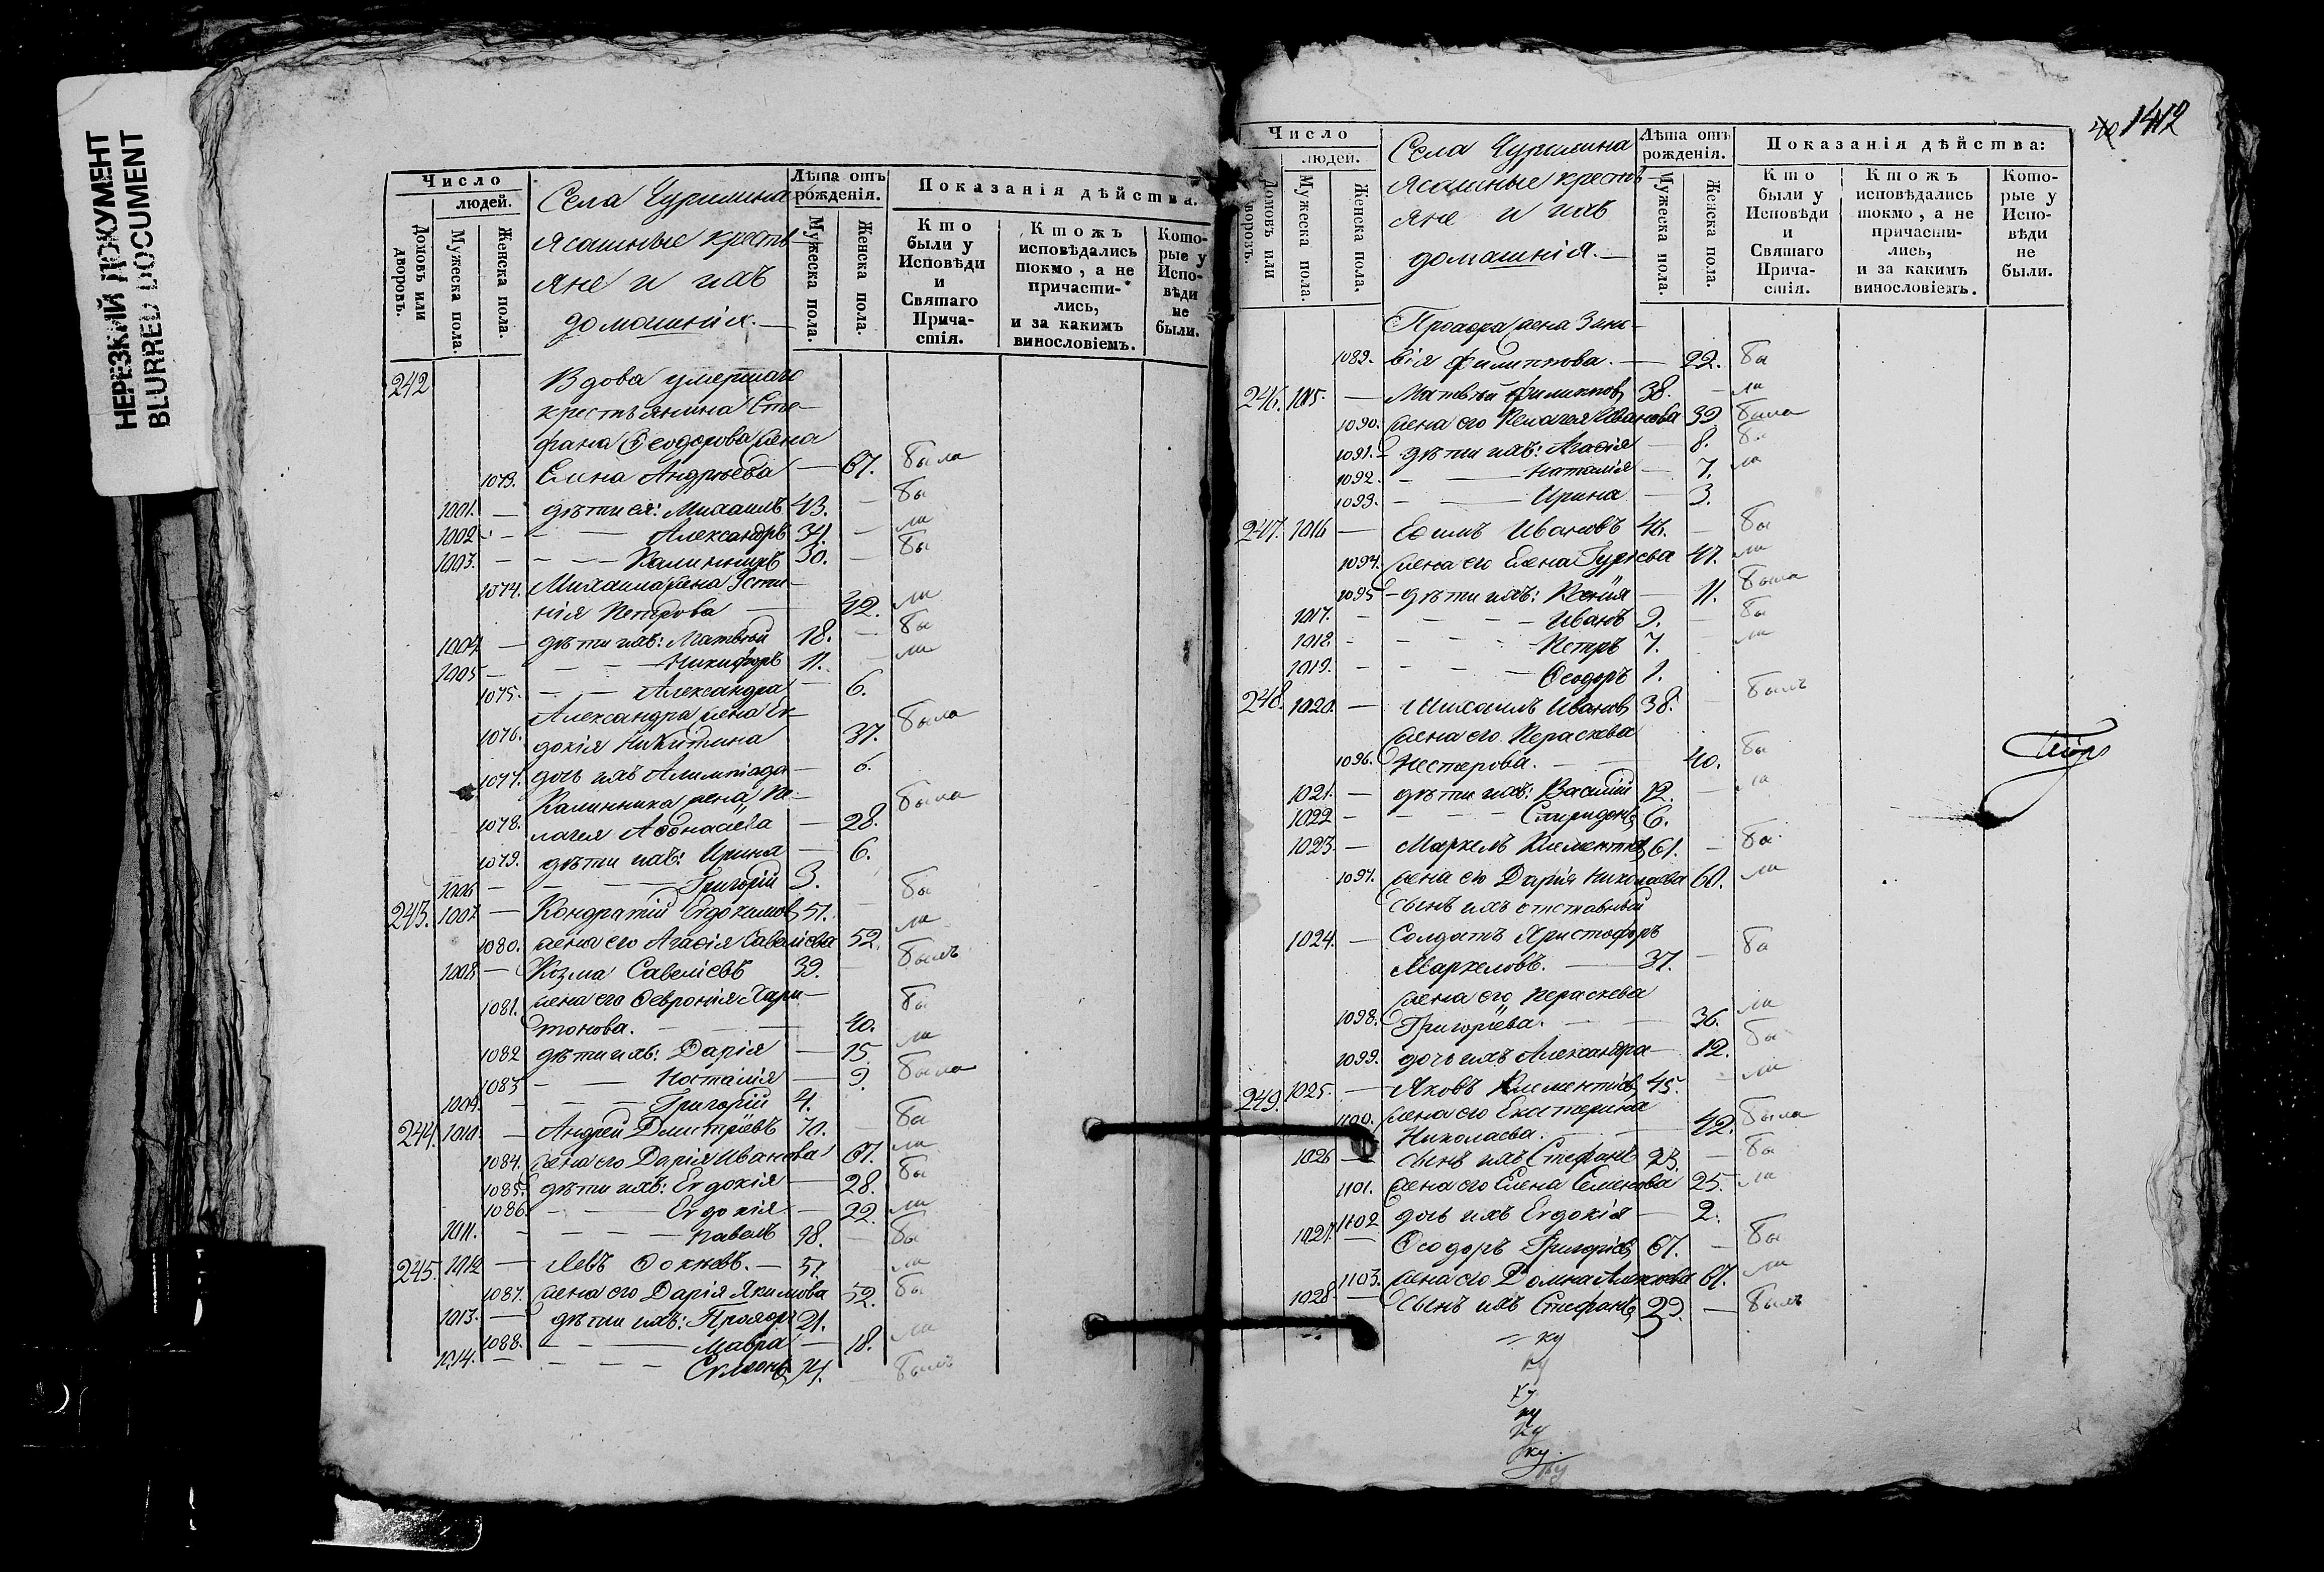 НЕРЕЗКИЙ ДОКУМЕНТ
BLURRED DOCUMENT
Число
людей.
Домовъ или дворовъ.
Мужеска пола.
Женска пола.
Села Чурилина
Ясашные кресть-
яне и ихъ
домашнія.—
Лѣта отъ рожденія.
Мужеска пола.
Женска пола.
Показанія дѣйства:
Кто были у Исповѣди и Святаго Прича-стія.
Ктожъ исповѣдались токмо, а не причасти-лись, и за какимъ винословіемъ.
Кото-рые у Испо-вѣди не были.
242 Вдова умершаго
крестьянина Сте-
фана Ѳеодорова жена
1073. Елена Андреева — 67. была
1001. — дѣти ея: Михаилъ 43. — бы
1002 - — Александръ 34. — ли
1003. - — Калинникъ 30. — бы
1074. Михаила жена Усти-
нія Петрова — 42. ли
1004 — дѣти ихъ: Матвей 18. — бы
1005 — Никифоръ 11. — ли
1075. — Александра — 6.
Александра жена Ев-
1076. докія Никитина 37. была
1077. дочь ихъ Алимпіада — 6.
Калинника жена Пе-
1078. лагея Аѳонасіева — 28. была
1079. дѣти ихъ: Ирина — 6.
1006 — Григорій 3.
243. 1007 — Кондратій Евдокимовъ 51. — бы
1080. жена его Агаѳія Савеліева 52. ли
1008 — Козма Савеліевъ 39. — былъ
1081. жена его Ѳевронія Хари-
тонова. — 40. бы
1082 дѣти ихъ: Дарія — 15 ли
1083 — Наталія — 9. была
1009. — Григорій 4.
244. 1010. — Андрей Дмитріевъ 70. — бы
1084. жена его Дарія Иванова 67. ли
1085. дѣти ихъ: Евдокія — 28. бы
1086. — Евдокія — 22. ли
1011. — Павелъ 18. — бы
245. 1012 — Левъ Фокѣевъ. — 51. ли
1087. жена его Дарія Якимова 52. бы
1013. — дѣти ихъ: Прохоръ 21.
1088. — Мавра — 18. ли
1014. — 14. — былъ
1412
Число
людей.
Домовъ или дворовъ.
Мужеска пола.
Женска пола.
Села Чурилина
Ясашные кресть-
яне и ихъ
домашнія.—
Лѣта отъ рожденія.
Мужеска пола.
Женска пола.
Показанія дѣйства:
Кто были у Исповѣди и Святаго Прича-стія.
Ктожъ исповѣдались токмо, а не причасти-лись, и за какимъ винословіемъ.
Кото-рые у Испо-вѣди не были.
Прохора жена Зино-
1089. вія Филиппова. — 22. бы
246. 1015. — Матвей Филиповъ 38. — ли
1090. жена его Пелагея Иванова 39 была
1091. - дѣти ихъ: Агаѳія — 8. бы
1092. — Наталія — 7. ли
1093. — Ирина — 3.
247. 1016 — Ефимъ Ивановъ 46. — бы
1094. жена его Елена Гурьева 47. ли
1095 - дѣти ихъ: Ксенія — 11. была
1017. — Иванъ 9. — бы
1018. — Петръ 7. ли
1019. — Ѳеодоръ 1.
248. 1020. — Михаилъ Ивановъ 38. — былъ
жена его Параскева
1096. Нестерова. — 40. бы
1021. — дѣти ихъ: Василій 12. — ли
1022 — Спиридонъ 6.
1023. — Маркелъ Климентіевъ 61. — бы
1097. жена его Дарія Николаева 60. ли
Сынъ ихъ отставный
1024. — Солдатъ Христофоръ
Маркеловъ. — 37. — бы
жена его Параскева
1098. Григоріева. — 36. ли
1099. дочь ихъ Александра — 12. бы
249. 1025. — Яковъ Климентіевъ 45. — ли
1100. жена его Екатерина
Николаева. — 42. была
1026 — сынъ ихъ Стефанъ 23. — бы
1101. жена его Елена Семенова 25. ли
1102 дочь ихъ Евдокія — 2.
1027. — Ѳеодоръ Григоріевъ 67. — бы
1103. жена его Домна 67. ли
1028 — Сынъ ихъ Стефанъ 29. — былъ
ку
ку
ку
ку
ку
ку
ку